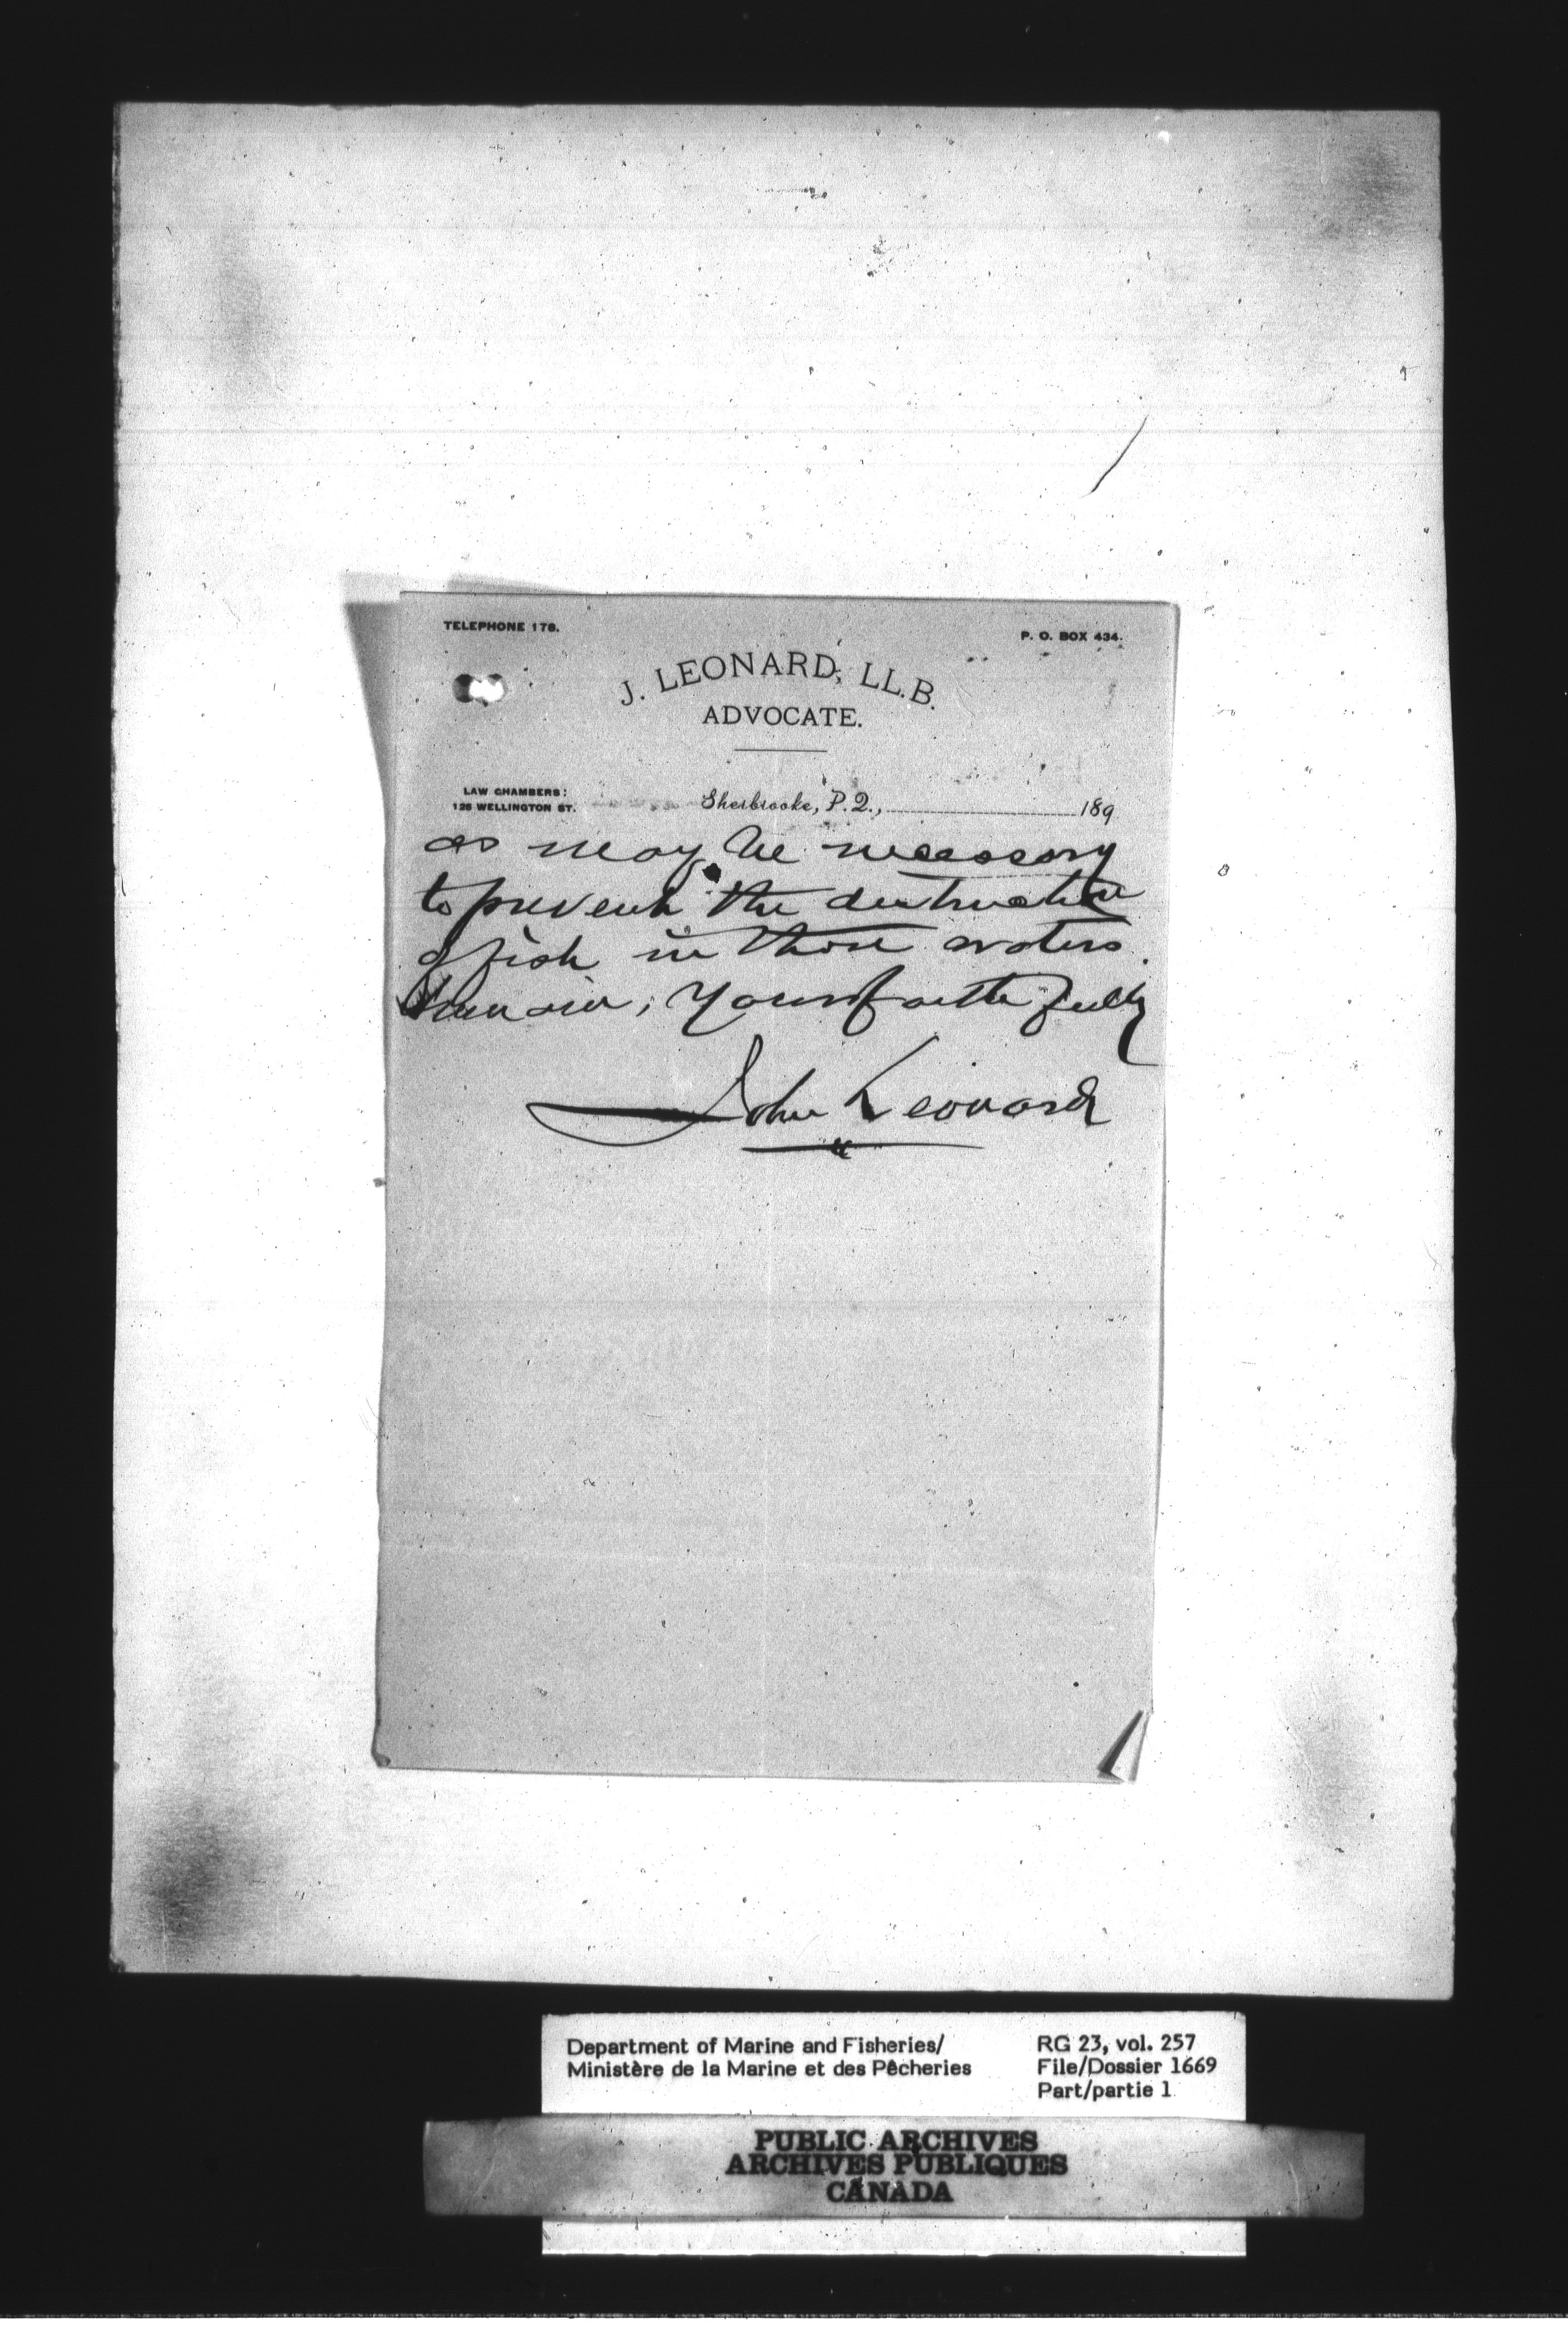 TELEPHONE 178.
P. O. BOX 434.
J. LEONARD, LL.B.
ADVOCATE.
LAW CHAMBERS:
125 WELLINGTON ST.
Sherbrooke, P.Q., 189
as may be necessary
to prevent the destruction
of fish in those waters.
Yours faithfully
John Leonard
Department of Marine and Fisheries/
Ministère de la Marine et des Pêcheries
RG 23, vol. 257
File/Dossier 1669
Part/partie 1
PUBLIC ARCHIVES
ARCHIVES PUBLIQUES
CANADA